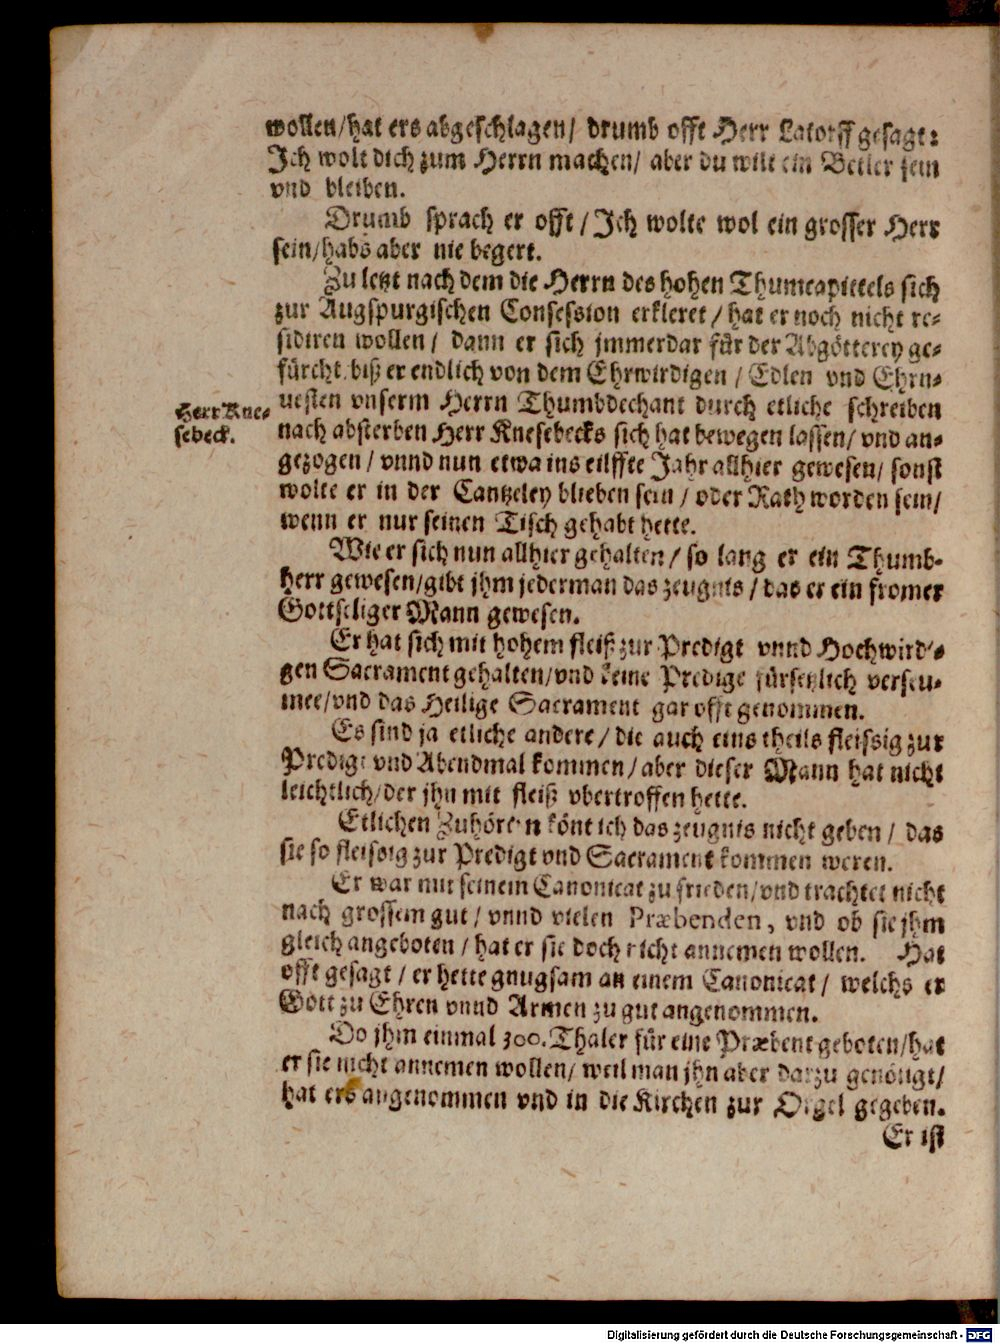 wollen/hat ers abgeschlagen/ drumb offt Herr Latorff gesagt:
Ich wolt dich zum Herrn machen/ aber du wilt ein Betler sein
vnd bleiben.
Drumb sprach er offt / Ich wolte wol ein grosser Herr
sein/habs aber nie begert.
Zu letzt nach dem die Herrn des hohen Thumcapittels sich
zur Augspurgischen Confession erkleret / hat er noch nicht re-
sidiren wollen / dann er sich jmmerdar für der Abgötterey ge-
fürcht, biß er endlich von dem Ehrwirdigen / Edlen vnd Ehrn-
uesten vnserm Herrn Thumbdechant durch etliche schreiben
Herr Kne-
sebeck.
nach absterben Herr Knesebecks sich hat bewegen lassen/ vnd an-
gezogen / vnnd nun etwa ins eilffte Jahr allhier gewesen/ sonst
wolte er in der Cantzeley blieben sein / oder Rath worden sein/
wenn er nur seinen Tisch gehabt hette.
Wie er sich nun allhier gehalten / so lang er ein Thumb-
herr gewesen/gibt jhm jederman das zeugnis / das er ein fromer
Gottseliger Mann gewesen.
Er hat sich mit hohem fleiß zur Predigt vnnd Hochwirdi-
gen Sacrament gehalten/vnd keine Predigt fürsetzlich verseu-
met/vnd das Heilige Sacrament gar offt genommen.
Es sind ja etliche andere / die auch eins theils fleissig zur
Predigt vnd Abendmal kommen / aber dieser Mann hat nicht
leichtlich/der jhn mit fleiß vbertroffen hette.
Etlichen Zuhörern könt ich das zeugnis nicht geben / das
sie so fleissig zur Predigt vnd Sacrament kommen weren.
Er war mit seinem Canonicat zu frieden/vnd trachtet nicht
nach grossem gut / vnnd vielen Præbenden, vnd ob sie jhm
gleich angeboten / hat er sie doch nicht annemen wollen. Hat
offt gesagt / er hette gnugsam an einem Canonicat / welchs er
Gott zu Ehren vnnd Armen zu gut angenommen.
Do jhm einmal 300. Thaler für eine Præbent geboten/hat
er sie nicht annemen wollen/ weil man jhn aber darzu genötigt/
hat ers angenommen vnd in die Kirchen zur Orgel gegeben.
Er ist
Digitalisierung gefördert durch die Deutsche Forschungsgemeinschaft - DFG